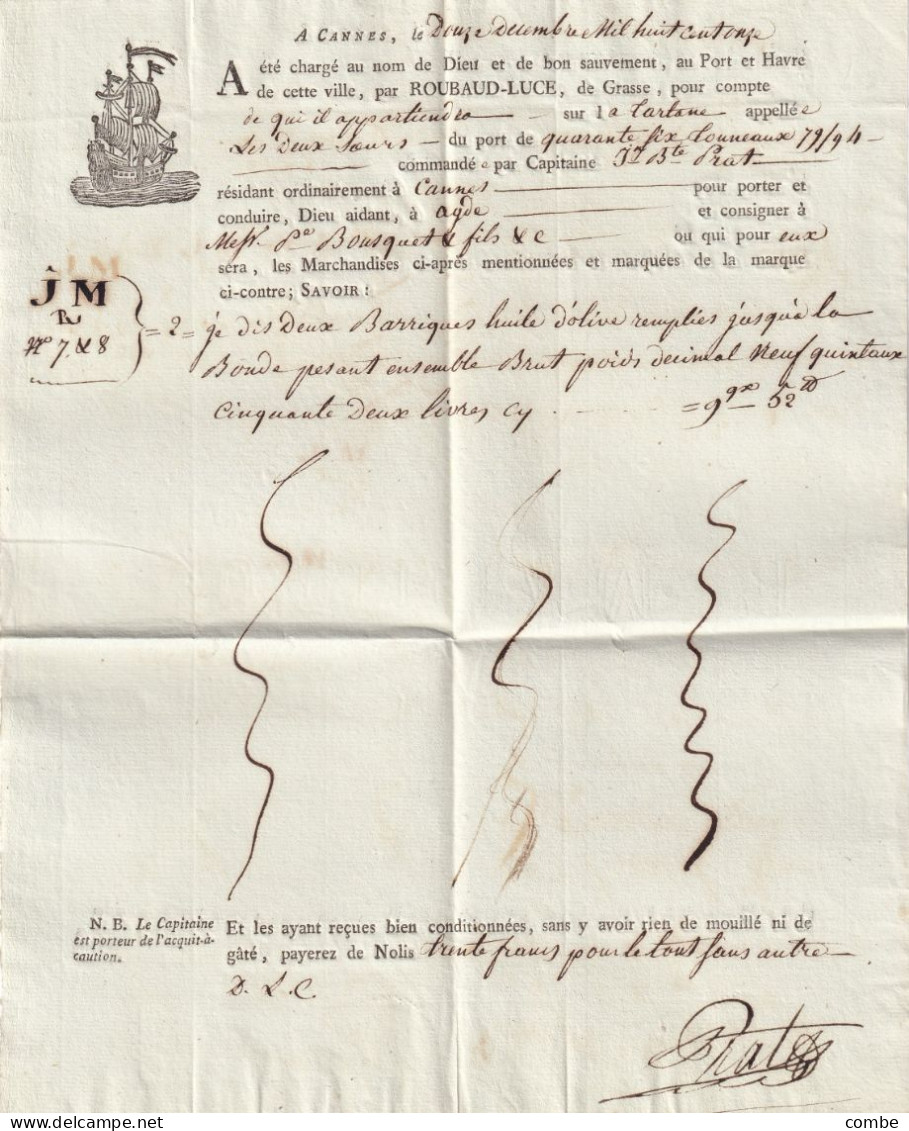 A CANNES, le Douze decembre Mil huit cent onze
A été chargé au nom de Dieu et de bon sauvement, au Port et Havre
de cette ville, par ROUBAUD-LUCE, de Grasse, pour compte
de qui il appartiendra sur la Tartane appellée
Les Deux Sœurs du port de quarante six Tonneaux 79/94
commandée par Capitaine Jn Bte Prat
résidant ordinairement à Cannes pour porter et
conduire, Dieu aidant, à agde et consigner à
Messrs. Pre Bousquet & fils & C ou qui pour eux
sera, les Marchandises ci-après mentionnées et marquées de la marque
ci-contre; SAVOIR:
J M
R
No 7. & 8
= 2 = je dis Deux Barriques huile d'olive remplies jusqu'à la
Bonde pesant ensemble Brut poids decimal Neuf quintaux
Cinquante Deux livres cy = 9 qx 52 lb
N. B. Le Capitaine
est porteur de l'acquit-à-
caution.
Et les ayant reçues bien conditionnées, sans y avoir rien de mouillé ni de
gâté, payerez de Nolis trente francs pour le tout sans autre
D. L. C.
Prat
combe